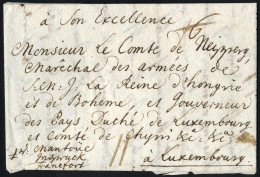 à Son Excellence
Monsieur le Comte de Neiperg
Marêchal des armées de
S. M. J. La Reine d'hongrie
et de Bohême, et Gouverneur
des Pays Duché de Luxembourg
et Comte de Chyni &c. &c.
à Luxembourg.
par Mantoüe
Inspruck
francfort